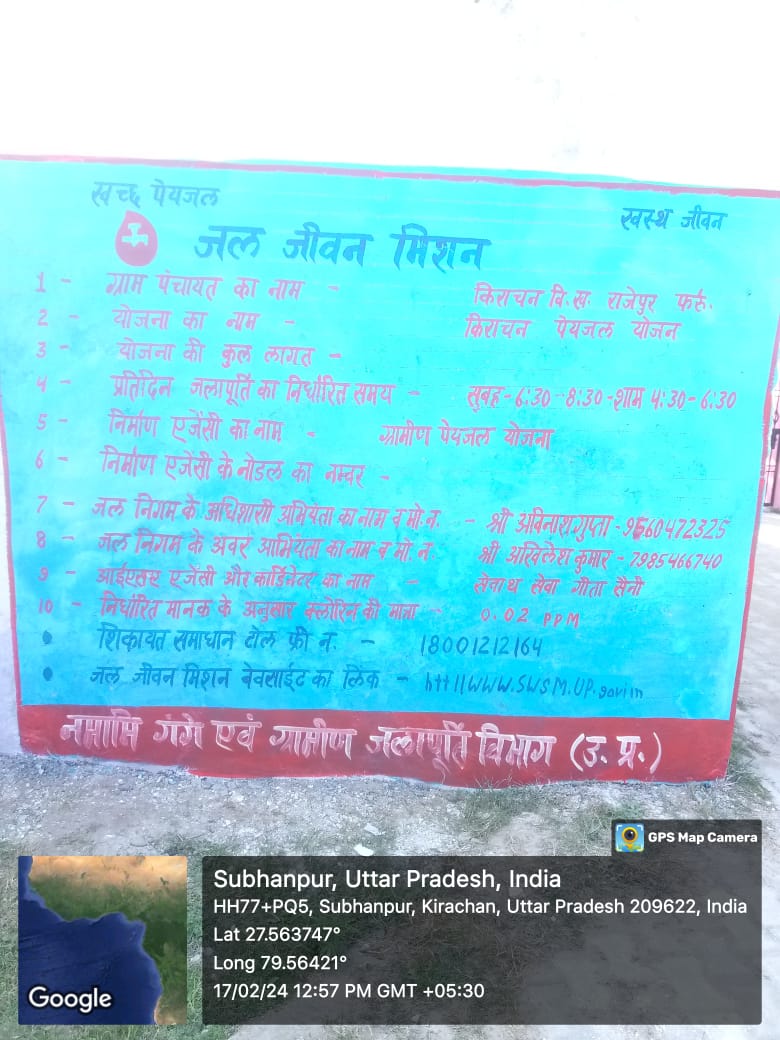 स्वच्छ पेयजल
स्वस्थ जीवन
जल जीवन मिशन
1 - ग्राम पंचायत का नाम - किराचन वि.ख. राजेपुर फर्रु.
2 - योजना का नाम - किराचन पेयजल योजन
3 - योजना की कुल लागत -
4 - प्रतिदिन जलापूर्ति का निर्धारित समय - सुबह-6:30-8:30-शाम 4:30-6:30
5 - निर्माण एजेंसी का नाम - ग्रामीण पेयजल योजना
6 - निर्माण एजेंसी के नोडल का नम्बर -
7 - जल निगम के अधिशासी अभियंता का नाम व मो.न. - श्री अविनाश गुप्ता-9560472325
8 - जल निगम के अवर अभियंता का नाम व मो. न. श्री अखिलेश कुमार - 7985466740
9 - आईएसए एजेंसी और कार्डिनेटर का नाम - सेवा गीता सैनी
10 - निर्धारित मानक के अनुसार क्लोरिन की मात्रा - 0.02 PPM
• शिकायत समाधान टोल फ्री न. - 18001212164
• जल जीवन मिशन वेवसाईट का लिंक - htt11WWW.SWSM.UP.gov.in
नमामि गंगे एवं ग्रामीण जलापूर्ति विभाग (उ. प्र.)
GPS Map Camera
Subhanpur, Uttar Pradesh, India
HH77+PQ5, Subhanpur, Kirachan, Uttar Pradesh 209622, India
Lat 27.563747°
Long 79.56421°
17/02/24 12:57 PM GMT +05:30
Google